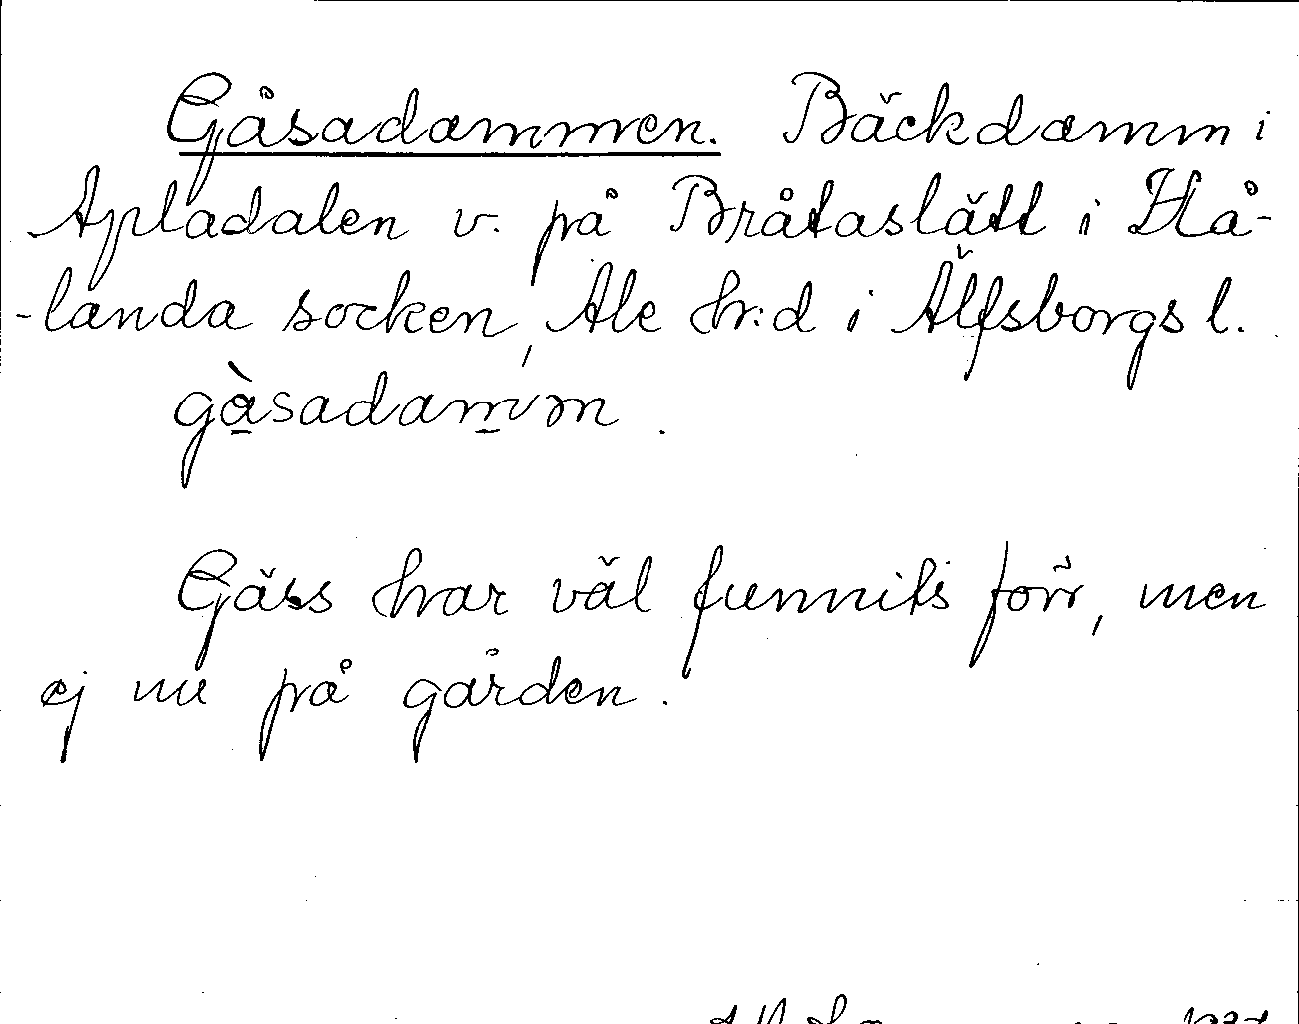 Gåsadammen. Bäckdamm i
Apladalen v. på Bråtaslätt i Hå-
-landa socken, Ale hr:d i Älfsborgs l.
gàsadamm.
Gäss har väl funnits förr, men
ej nu på gården.